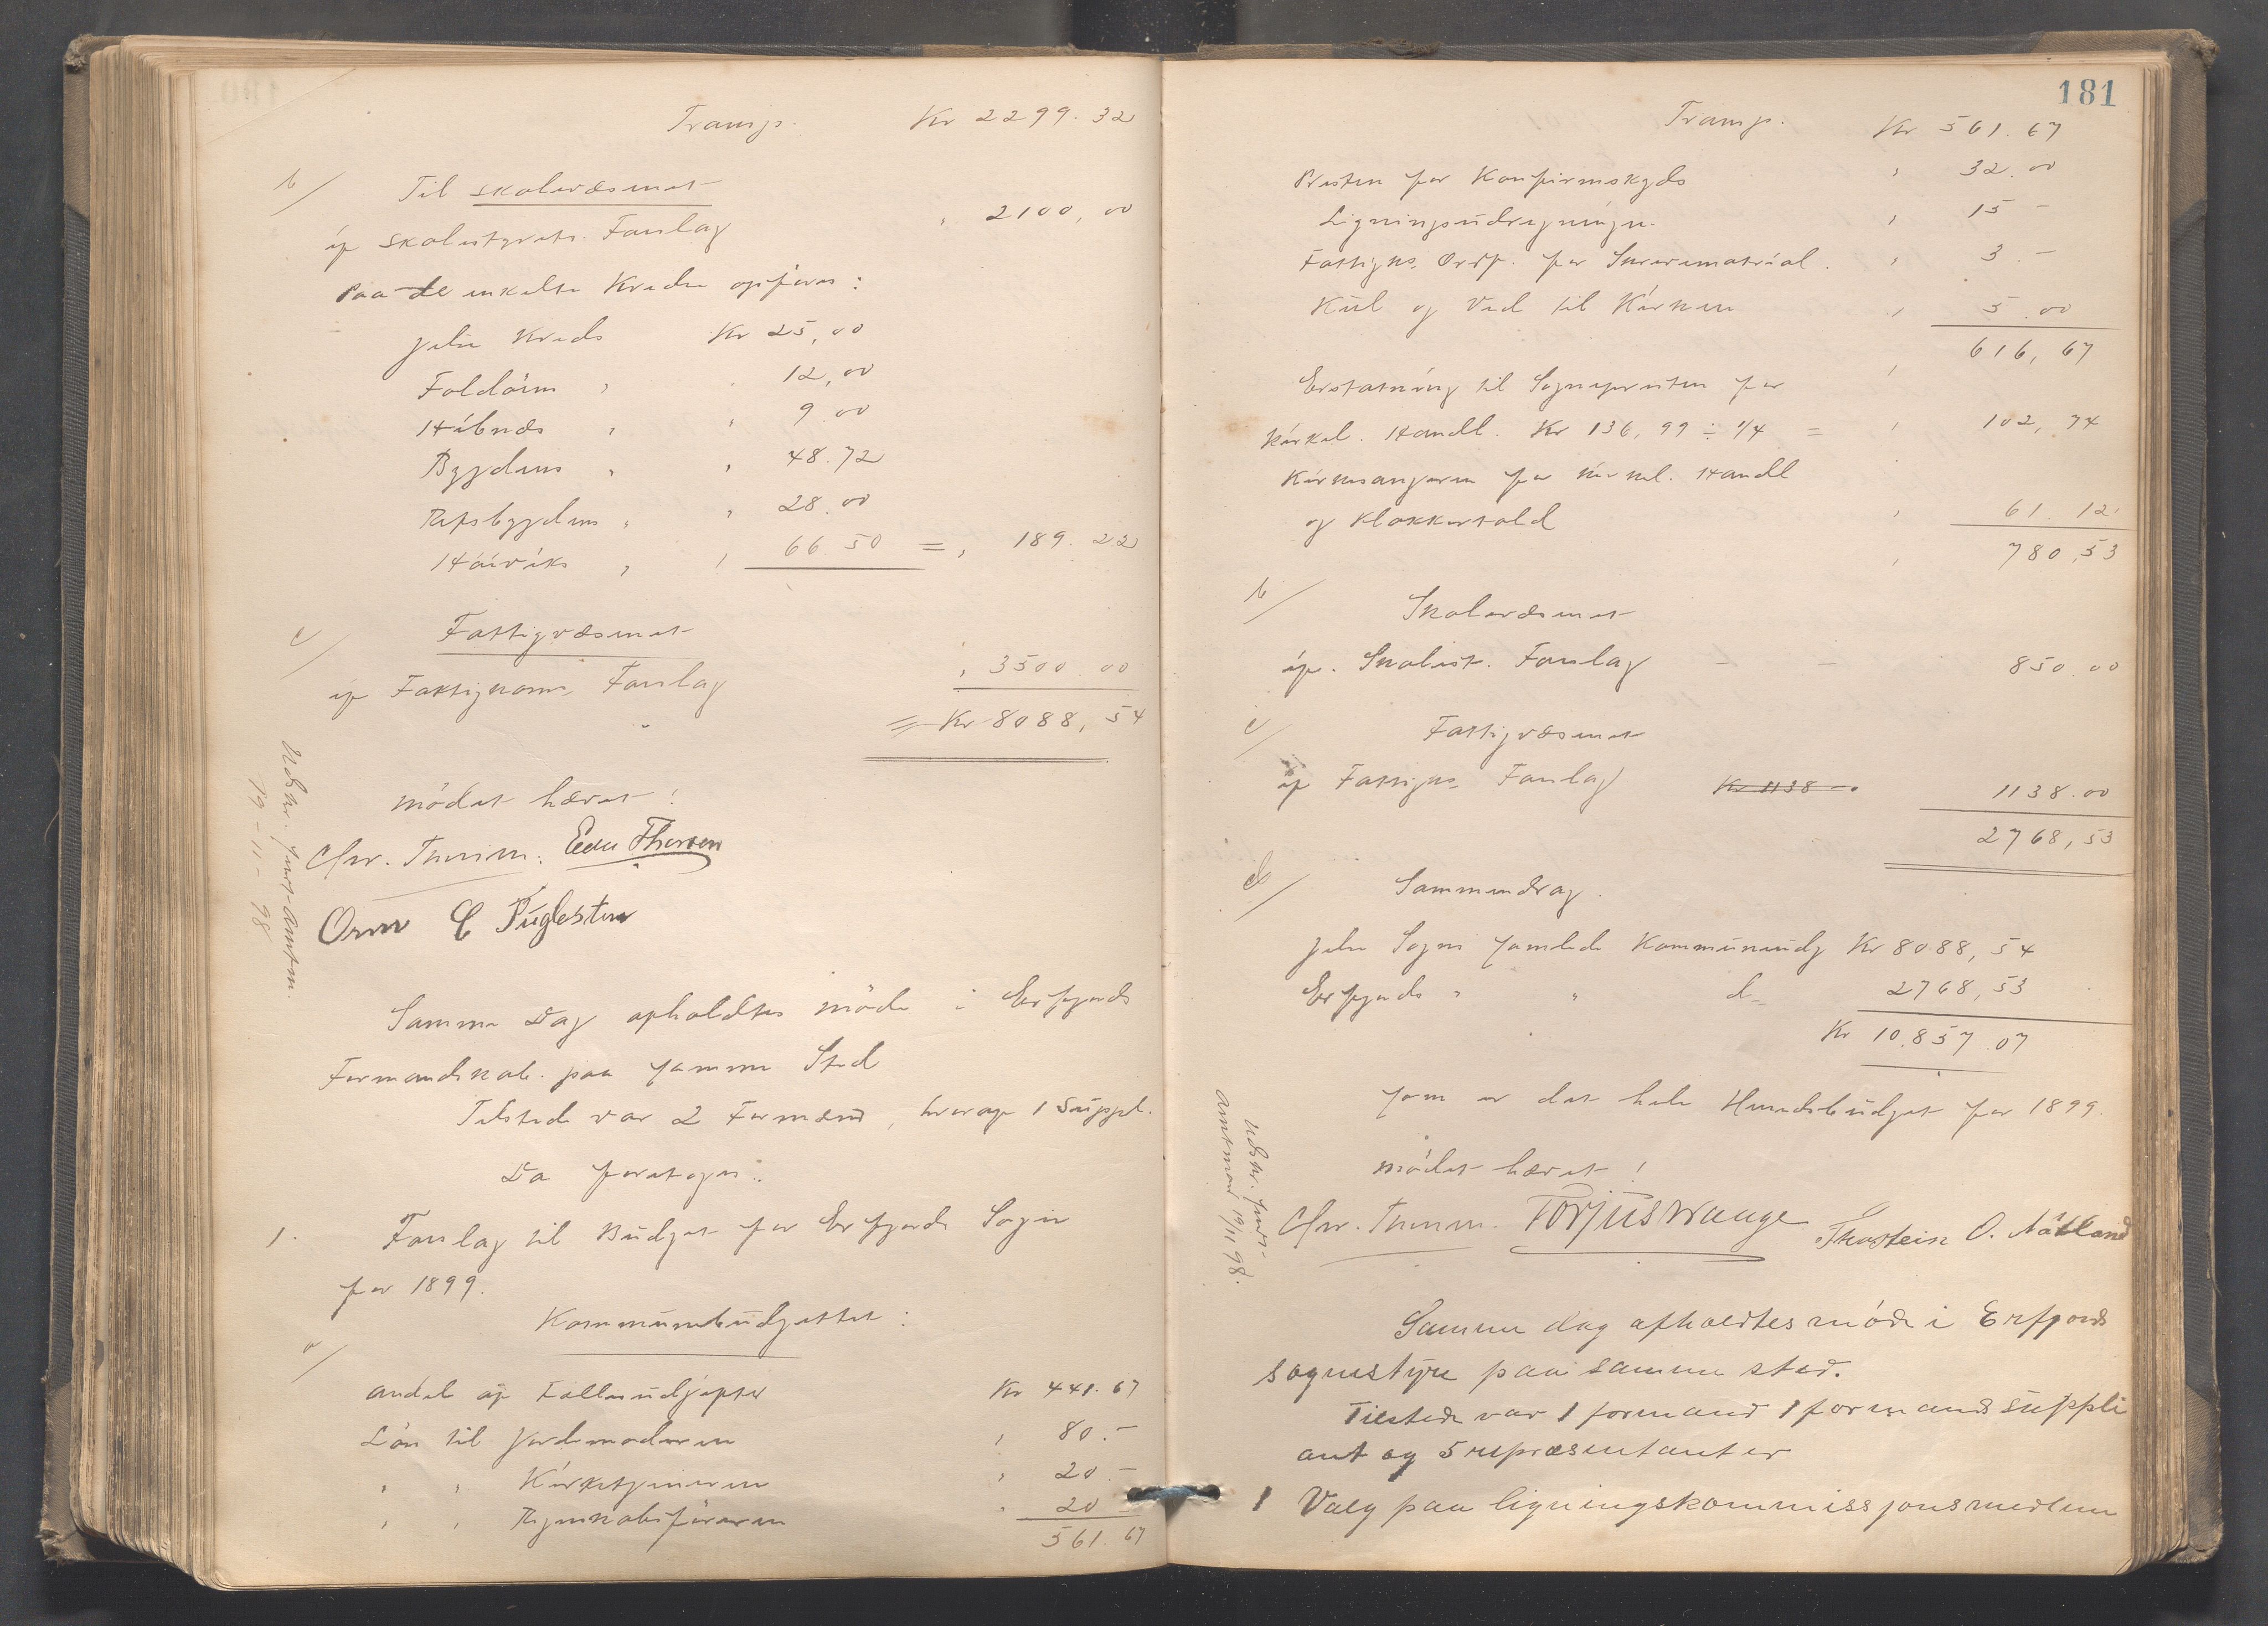 Transp. Kr 2299.32
b/ Til skolevæsenet
if skolestyrets Forslag " 2100,00
Paa de enkelte Kredse opföres:
Jelse Kreds Kr 25,00
Foldöens " " 12,00
Hebnes " " 9.00
Bygdens " " 48.72
Ropsbygdens " " 28.00
" " 66.50 = " 189.22
c/ Fattigvæsenet
if Fattigkoms. Forslag " 3500 00
= Kr 8088,54
Mödet hævet!
Chr. Edu Thorsen
Orm C Fuglesteen
Udskr. sendt Amtm.
19-11-98
Samme Dag afholdtes möde i Erfjords
Formandskab paa samme Sted
Tilstede var 2 Formænd, hvoraf 1 Suppl.
Da foretoges:
1. Forslag til Budget for Erfjords Sogn
for 1899.
Kommunebudgettet:
a/
Andel af Fællesudgifter Kr 441.67
Lön til Jordemoderen " 80.-
" " Kirketjeneren " 20.-
" " Regnskabsföreren " 20
561.67
181
Transp. Kr 561.67
Presten for Konfirmskyds " 32.00
Ligningsudregningen " 15 -
Fattigks. Ordf. for Skrivematrial. " 3.-
Kul og Ved til Kirken " 5.00
" 616,67
Erstatning til Sognepresten for
kirkel. Handl. Kr 136,99 ÷ 1/4 = " 102,74
Kirkesangeren for kirkel. Handl
og Klokkertold " 61.12
" 780,53
b/ Skolevæsenet
if. Skolest. Forslag - - 850.00
c/ Fattigvæsenet
if Fattigks. Forslag Kr 1138 - 1138.00
2768,53
d/ Sammendrag.
Jelse Sogns samlede Kommuneudg Kr 8088,54
Erfjords " " do 2768,53
Kr 10.857.07
som er det hele Herredsbudget for 1899.
Mödet hævet!
Chr. Torjus Vrange Thostein O. Nätland
Udskr. sendt
Amtmand 19/11 98.
Samme dag afholdtes möde i Erfjords
sognestyre paa samme sted.
Tilstede var 1 formand 1 formandssuppli
ant og 5 repræsentanter
1 Valg paa ligningskommissjonsmedlem